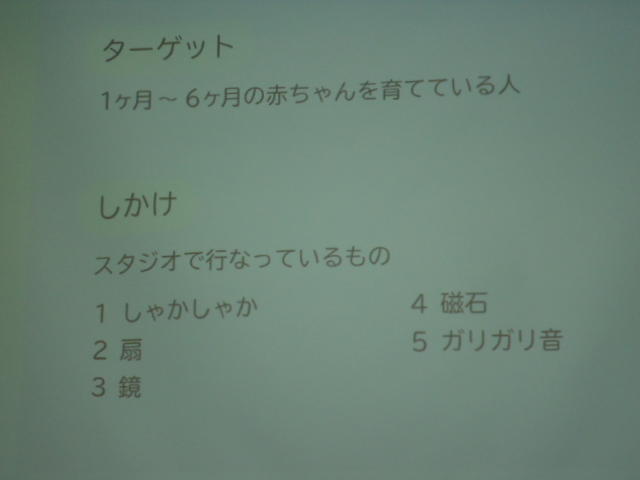 ターゲット
1ヶ月～6ヶ月の赤ちゃんを育てている人
しかけ
スタジオで行なっているもの
1 しゃかしゃか
2 扇
3 鏡
4 磁石
5 ガリガリ音